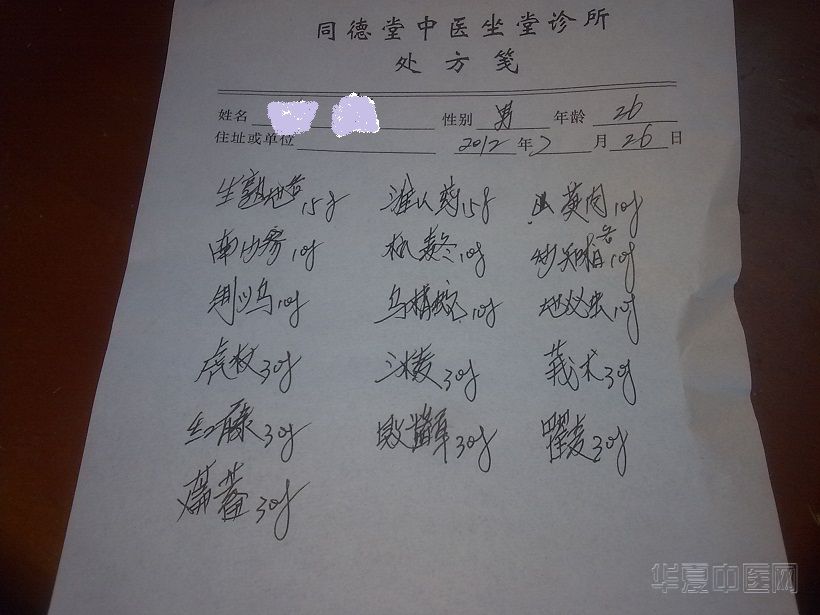 同德堂中医坐堂诊所
处方笺
姓名 性别 男 年龄 26
住址或单位 2012年7月26日
生熟地各15g 淮山药15g 山萸肉10g
南沙参10g 杭麦冬10g 炒知柏各10g
制川乌10g 乌梢蛇10g 地必虫10g
虎杖30g 三棱30g 莪术30g
红藤30g 败酱草30g 瞿麦30g
萹蓄30g
华夏中医网